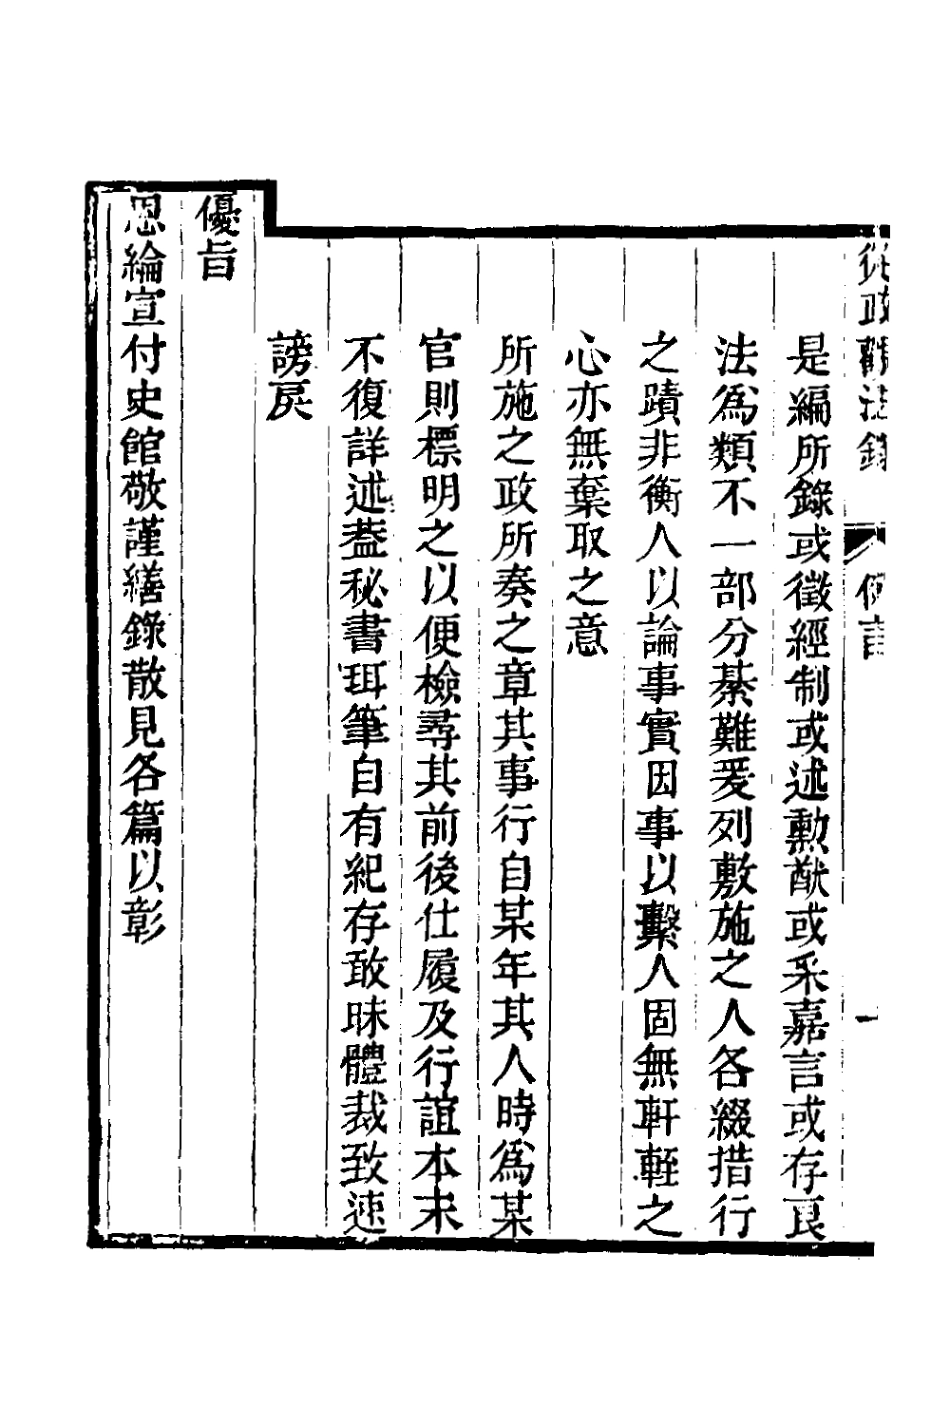 從政觀法錄 例言 一
是編所錄或徵經制或述勲猷或采嘉言或存良
法爲類不一部分綦難爰列敷施之人各綴措行
之蹟非衡人以論事實因事以繫人固無軒輊之
心亦無棄取之意
所施之政所奏之章其事行自某年其人時爲某
官則標明之以便檢尋其前後仕履及行誼本末
不復詳述葢秘書珥筆自有紀存敢昧體裁致速
謗戾
優旨
恩綸宣付史館敬謹繕錄散見各篇以彰